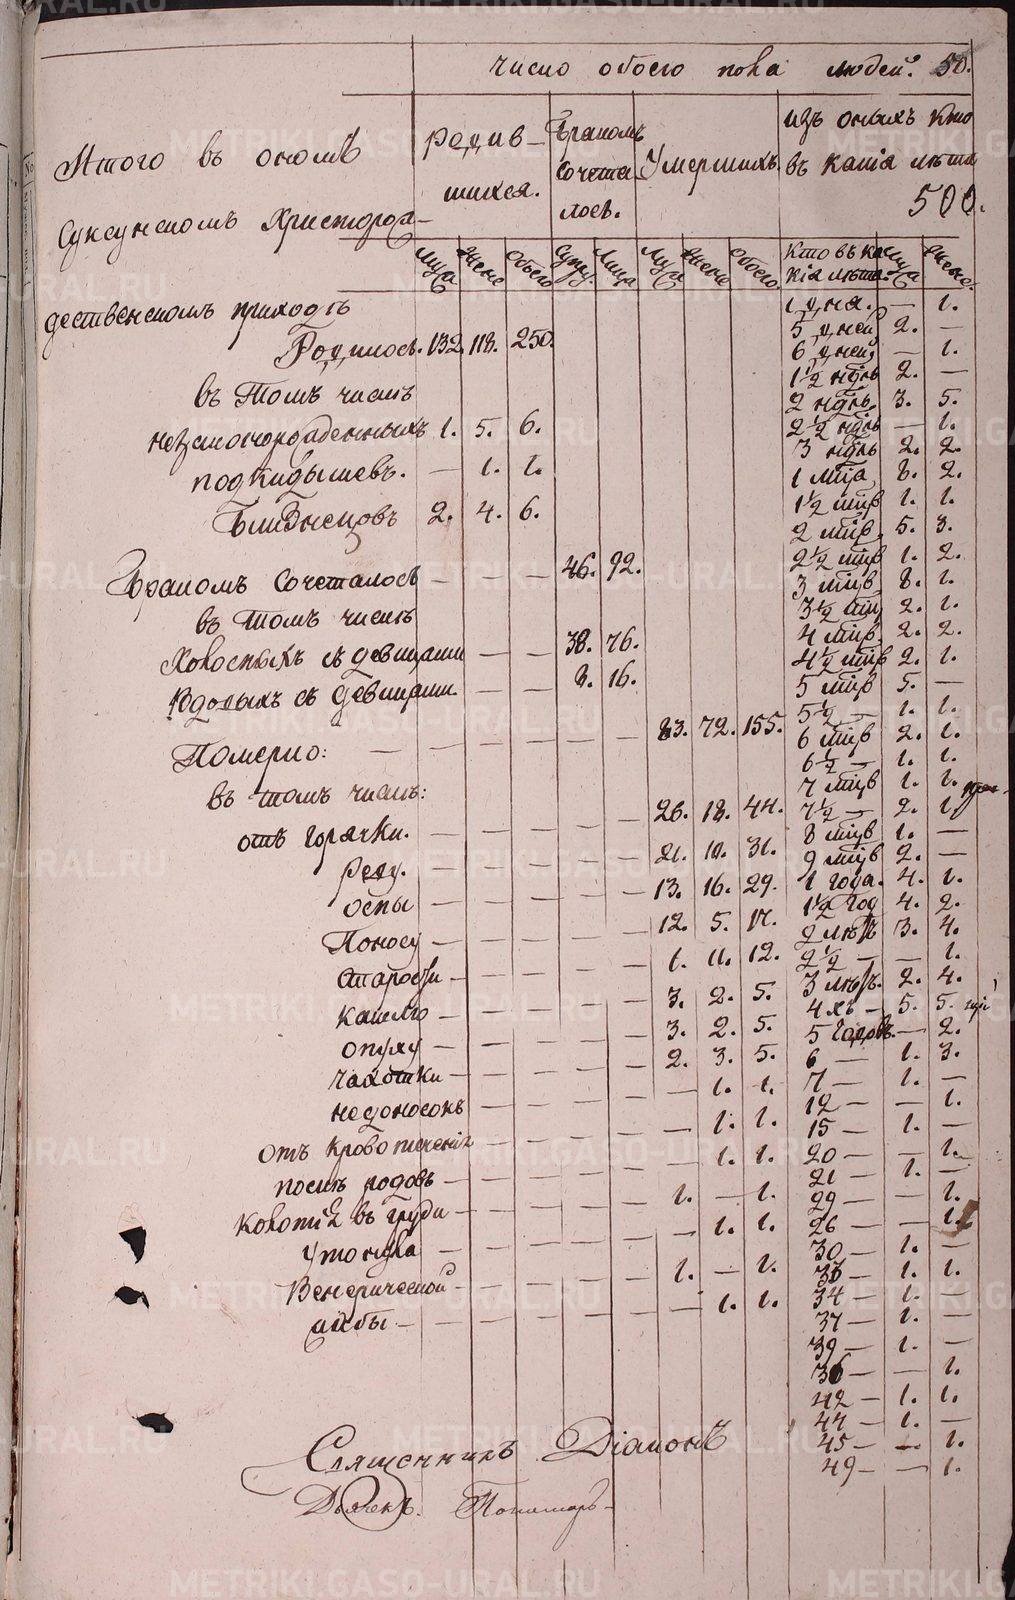 число обоего пола людей. 50.
Итого въ ономъ
Суксунскомъ Христорож-
дественскомъ приходѣ
родив-
шихся.
Бракомъ
сочета-
лось.
Умершихъ.
изъ оныхъ кто
въ какія лѣта
500.
Муж. Жене Обоего Супр. Лица Муж. Жене Обоего Кто въ ка- Муж. Жене.
кія лѣта.
Родилось. 132. 118. 250.
въ томъ числѣ
незаконорожденныхъ 1. 5. 6.
подкидышевъ. — 1. 1.
Близнецовъ 2. 4. 6.
Бракомъ сочеталось — — — 46. 92.
въ томъ числѣ
Холостыхъ съ девицами — — 38. 76.
Вдовыхъ съ девицами. — — 8. 16.
Померло: — — — — — — 83. 72. 155.
въ томъ числѣ:
отъ горячки. — — — — — 26. 18. 44.
Резу. — — — — — 21. 10. 31.
оспы — — — — — 13. 16. 29.
Поносу — — — — — 12. 5. 17.
старости — — — — — 1. 11. 12.
кашлю — — — — — 3. 2. 5.
опуху — — — — — 3. 2. 5.
чахотки — — — — — 2. 3. 5.
недоносокъ — — — — — 1. 1.
отъ кровотеченія — — — — 1. 1.
послѣ родовъ — — — — — 1. 1.
Колотія въ груди — — — — — 1. — 1.
Утонула — — — — — 1. 1.
Венерической — — — — — 1. — 1.
— — — — — — 1. 1.
1 дня. — 1.
5 дней 2. —
6 дней — 1.
1½ ндѣль 2. —
2 ндѣль. 3. 5.
2½ ндѣль — 1.
3 ндѣль 2. 2.
1 мца 8. 2.
1½ мцв 1. 1.
2 мцв. 5. 3.
2½ мцв 1. 2.
3 мцв 8. 1.
3½ мцв 2. 1.
4 мцв. 2. 2.
4½ мцв 2. 1.
5 мцв 5. —
5½ — 1. 1.
6 мцв 2. 1.
6½ — 1. 1.
7 мцв 1. 1.
7½ — 2. 1.
8 мцв 1. —
9 мцв 2. —
1 года. 4. 1.
1½ год 4. 2.
2 лѣтъ 3. 4.
2½ — — 1.
3 лѣтъ. 2. 4.
4хъ — 5. 5.
5 годовъ. — 2.
6 — 1. 3.
7 — 1. —
12 — — 1.
15 — 1. —
20 — — 1.
21 — 1. —
29 — — 1.
26 — — 1.
30 — 1. —
33 — 1. 1.
34 — 1. —
37 — 1. —
39 — 1. —
36 — — 1.
42 — 1. 1.
44 — 1. —
45 — — 1.
49 — — 1.
Священникъ
Дьячекъ. Пономарь